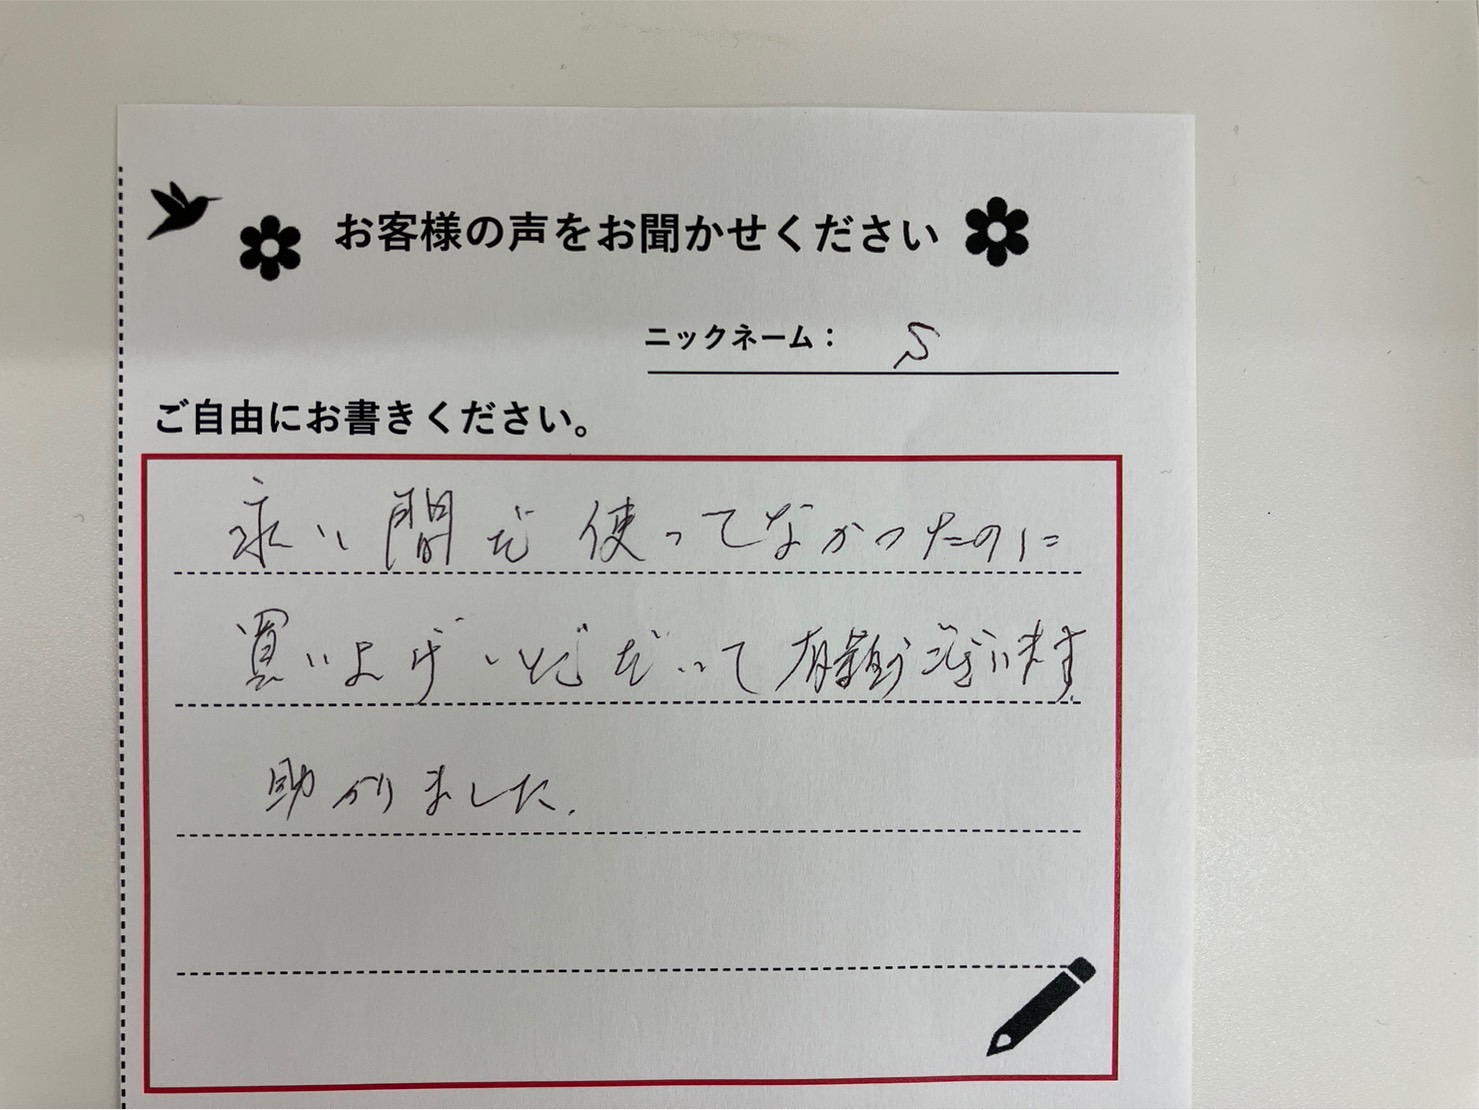 お客様の声をお聞かせください
ニックネーム： S
ご自由にお書きください。
永い間も使ってなかったのに
買い上げいただいて有難うございます
助かりました.